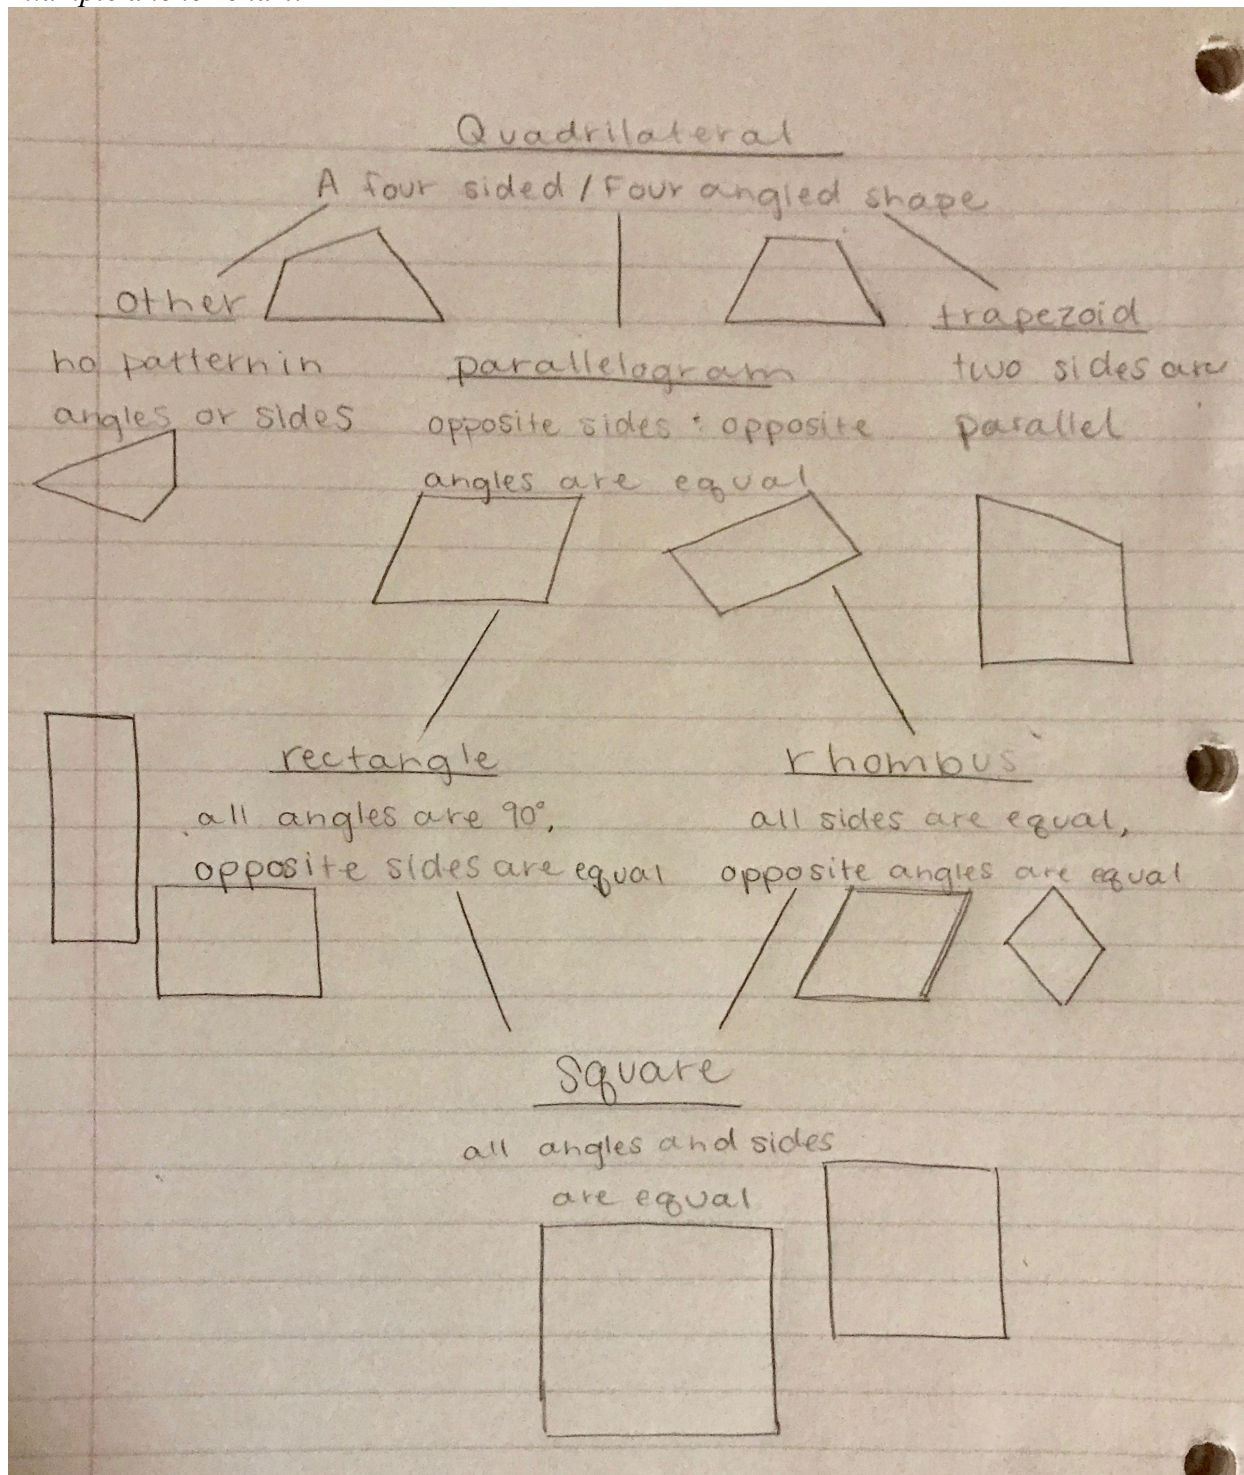 Quadrilateral
A four sided / Four angled shape
other
no pattern in
angles or sides
parallelogram
opposite sides : opposite
angles are equal
trapezoid
two sides are
parallel
rectangle
all angles are 90°,
opposite sides are equal
rhombus
all sides are equal,
opposite angles are equal
Square
all angles and sides
are equal